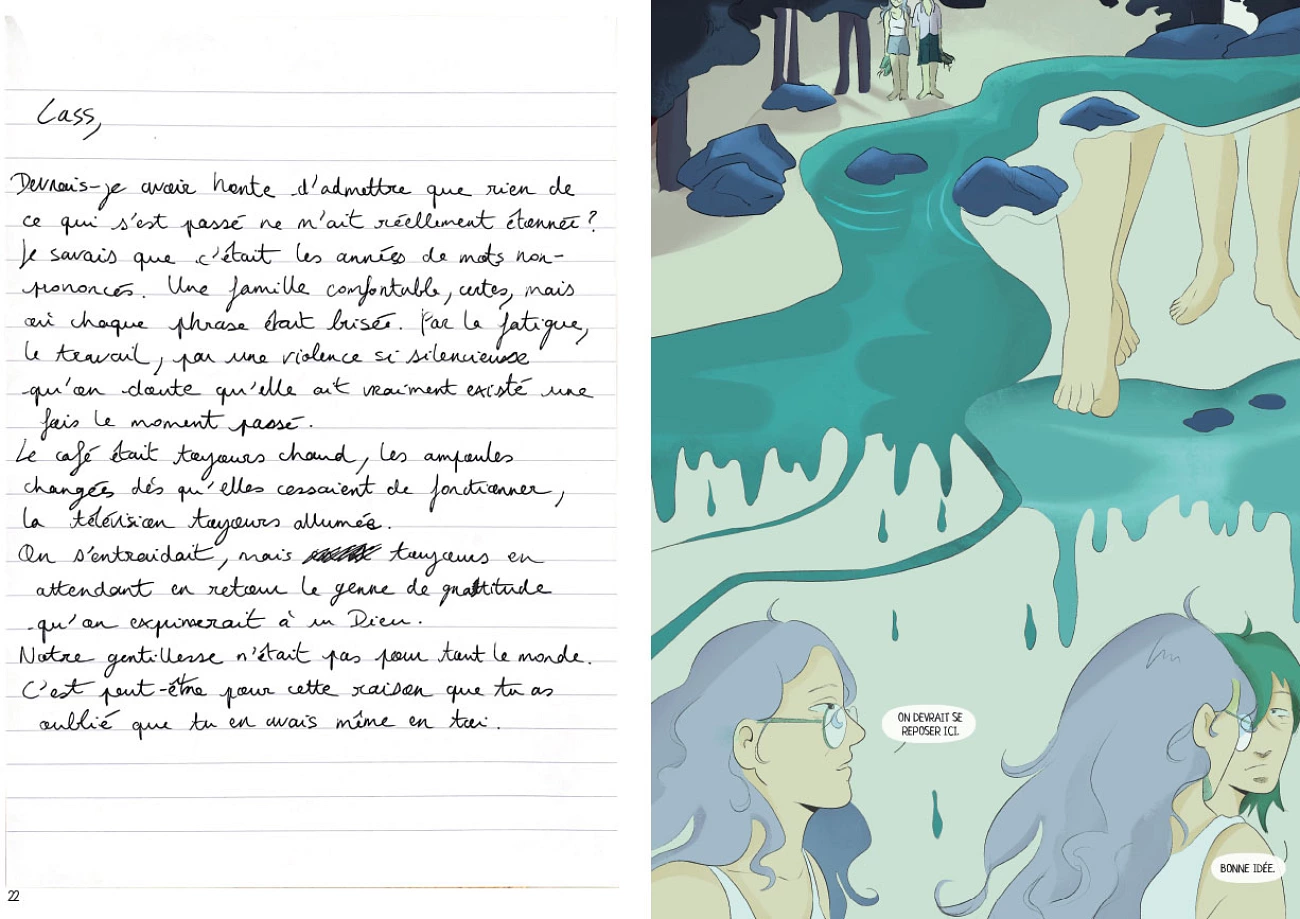 Cass,
Devrais-je avoir honte d'admettre que rien de
ce qui s'est passé ne m'ait réellement étonnée ?
Je savais que c'était les années de mots non-
prononcés. Une famille comfortable, certes, mais
où chaque phrase était brisée. Par la fatigue,
le travail, par une violence si silencieuse
qu'on doute qu'elle ait vraiment existé une
fois le moment passé.
Le café était toujours chaud, les ampoules
changées dés qu'elles cessaient de fonctionner,
la télévision toujours allumée.
On s'entraidait, mais toujours en
attendant en retour le genre de gratitude
qu'on exprimerait à un Dieu.
Notre gentillesse n'était pas pour tout le monde.
C'est peut-être pour cette raison que tu as
oublié que tu en avais même en toi.
22
ON DEVRAIT SE
REPOSER ICI.
BONNE IDÉE.